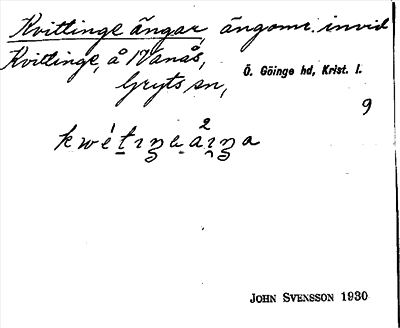 Kvittinge ängar, ängomr. invid
Kvittinge, å Wanås,
Gryts sn, Ö. Göinge hd, Krist. l.
9
JOHN SVENSSON 1930